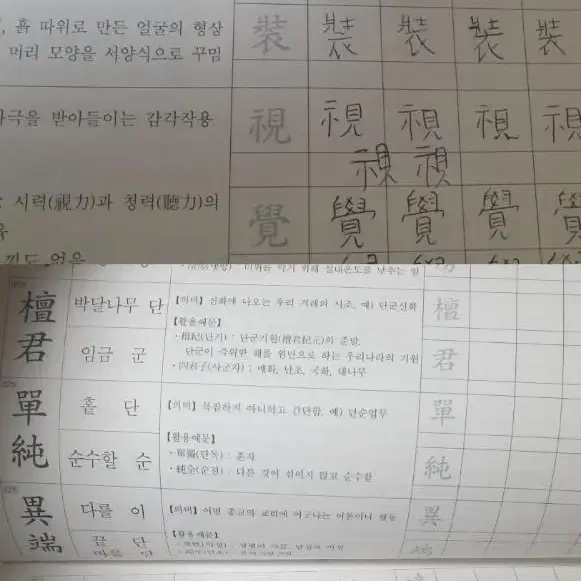 , 흙 따위로 만든 얼굴의 형상
머리 모양을 서양식으로 꾸밈
裝 裝 裝 裝 裝
극을 받아들이는 감각작용
視 視 視 視 視
視 視
: 시력(視力)과 청력(聽力)의
覺 覺 覺 覺 覺
檀君
박달나무 단
임금 군
【의미】 신화에 나오는 우리 겨레의 시조. 예) 단군신화
【활용예문】
· 檀紀(단기) : 단군기원(檀君紀元)의 준말.
단군이 즉위한 해를 원년으로 하는 우리나라의 기원
· 四君子(사군자) : 매화, 난초, 국화, 대나무
檀
君
單純
홑 단
순수할 순
【의미】 복잡하지 아니하고 간단함. 예) 단순업무
【활용예문】
· 單獨(단독) : 혼자
· 純全(순전) : 다른 것이 섞이지 않고 순수함
單
純
異端
다를 이
끝 단
【의미】 어떤 종교의 교리에 어긋나는 이론이나 행동
【활용예문】
異